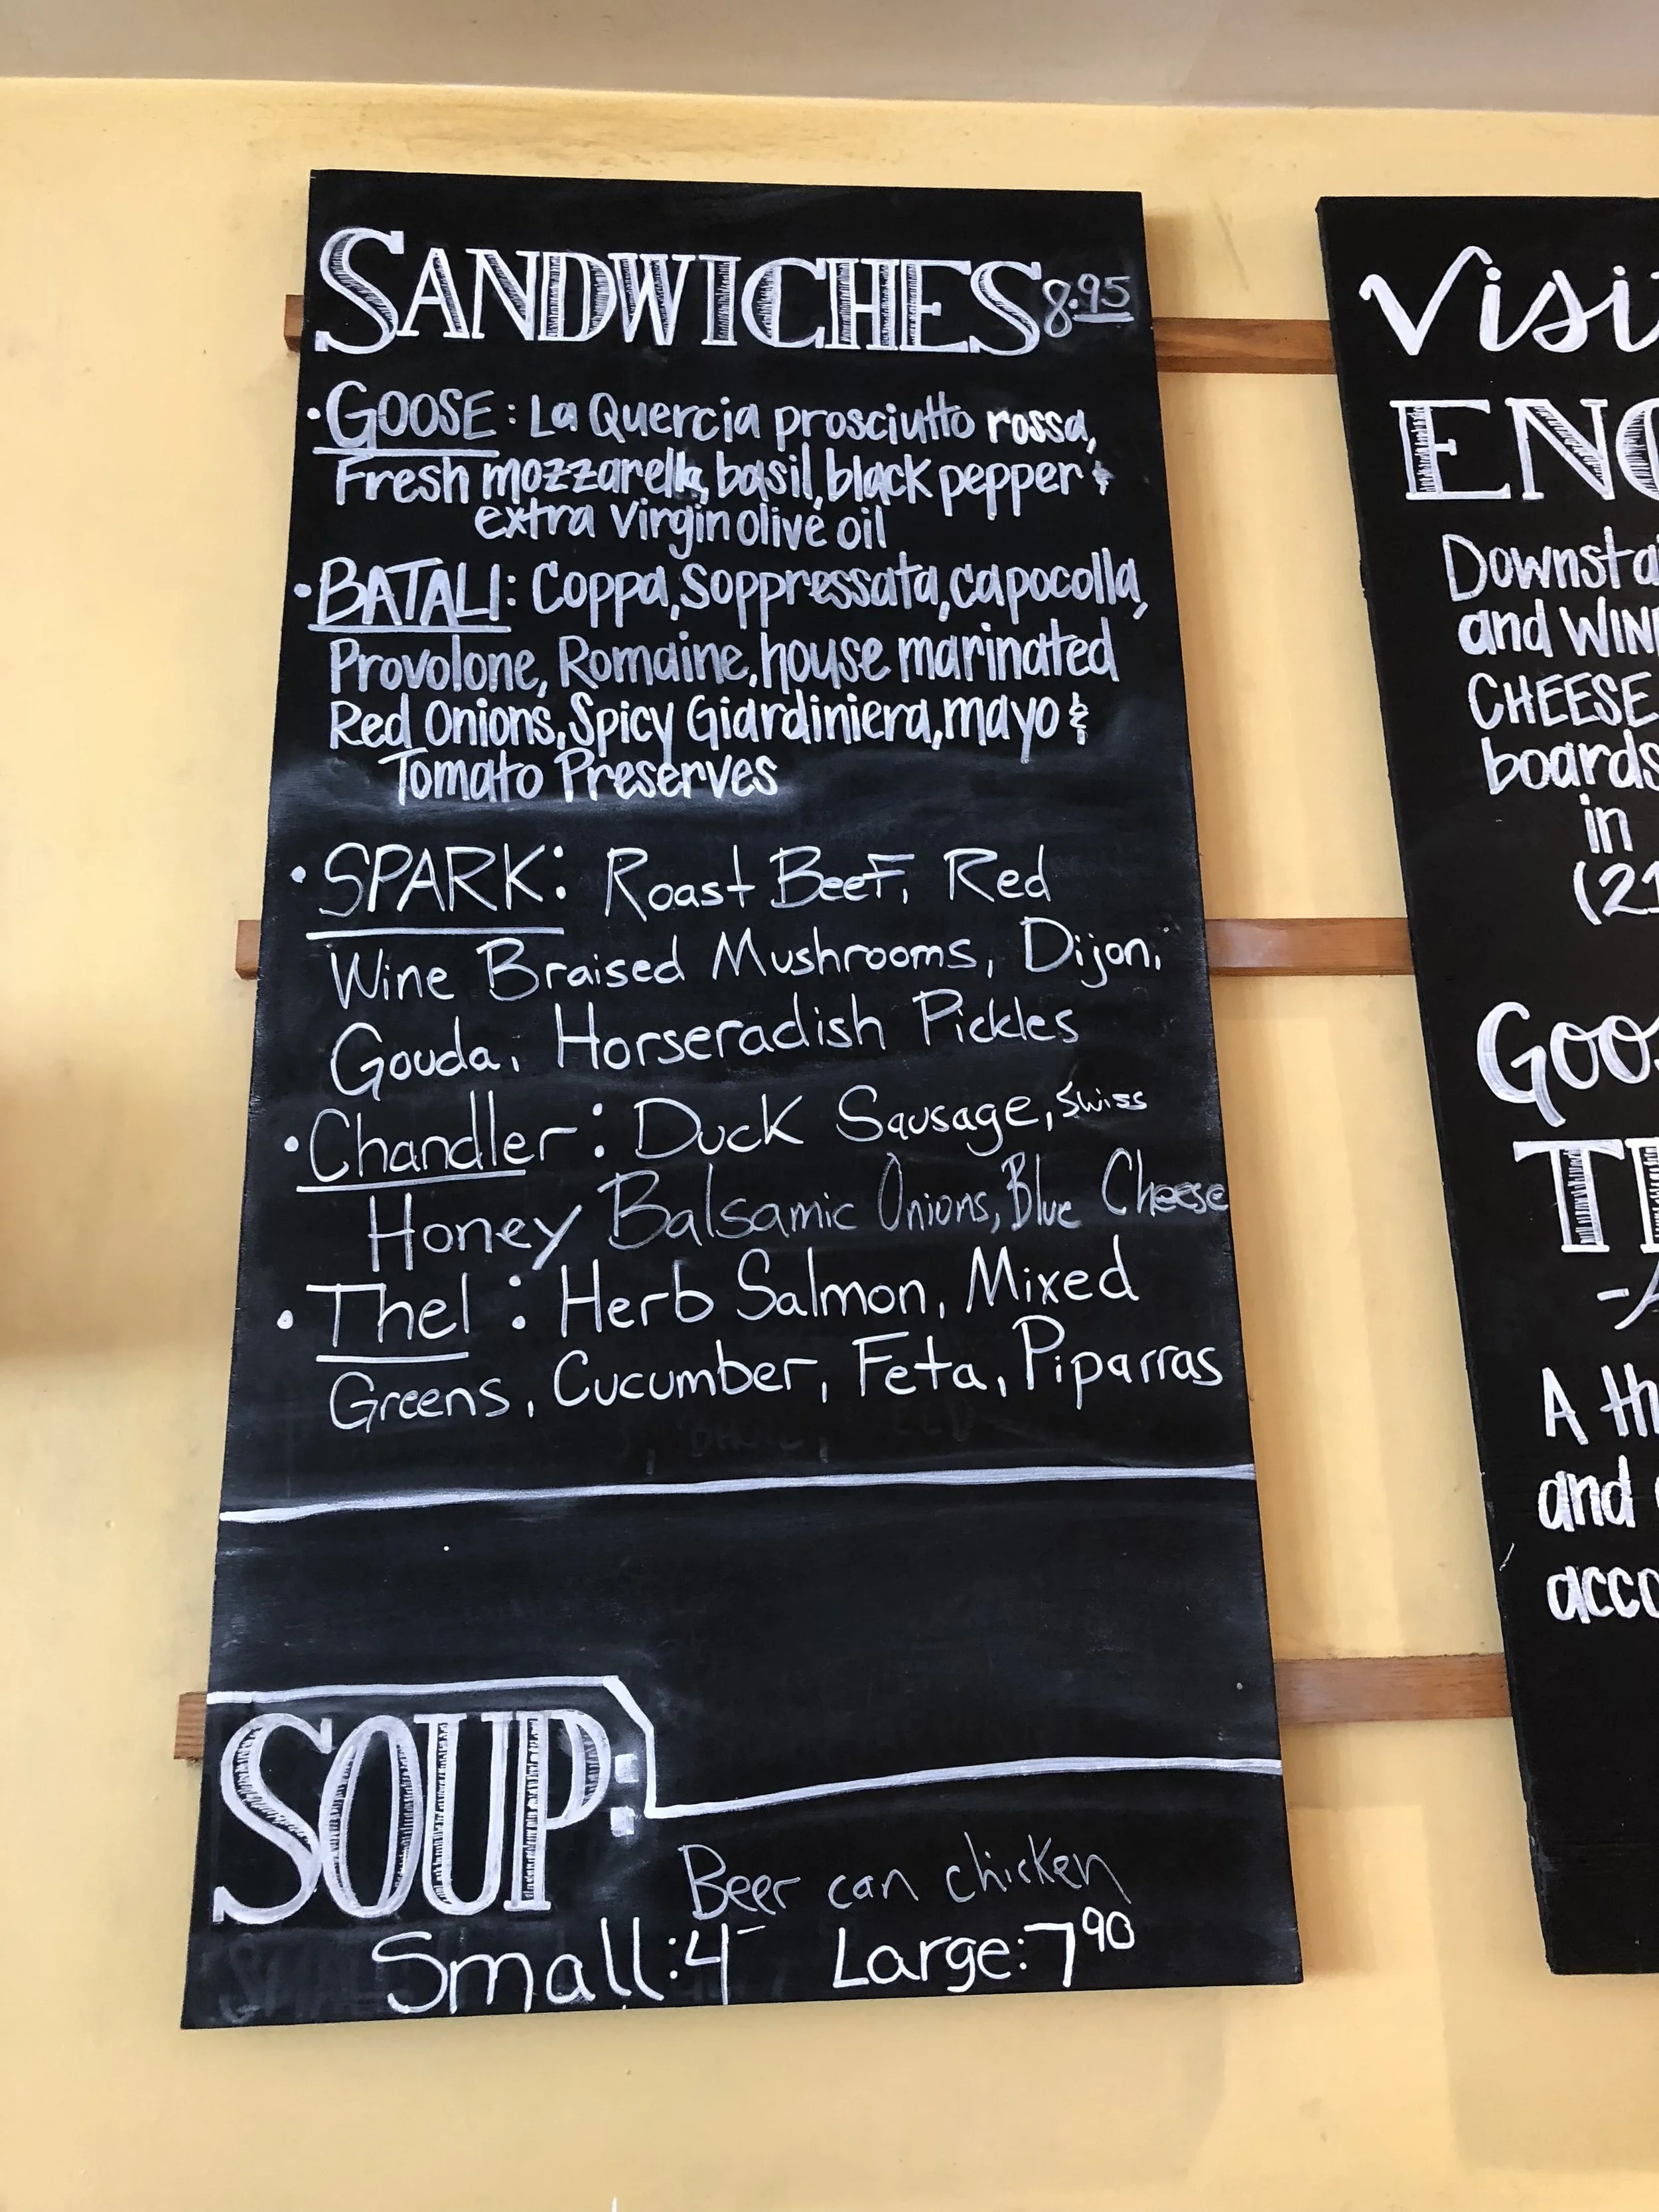 SANDWICHES 8.95
• GOOSE: La Quercia prosciutto rossa,
Fresh mozzarella, basil, black pepper &
extra virgin olive oil
• BATALI: Coppa, Soppressata, capocolla,
Provolone, Romaine, house marinated
Red Onions, Spicy Giardiniera, mayo &
Tomato Preserves
• SPARK: Roast Beef, Red
Wine Braised Mushrooms, Dijon,
Gouda, Horseradish Pickles
• Chandler: Duck Sausage, Swiss
Honey Balsamic Onions, Blue Cheese
• Thel: Herb Salmon, Mixed
Greens, Cucumber, Feta, Piparras
SOUP:
Beer can chicken
Small: 4- Large: 7 90
Visi
ENO
Downsta
and WIN
CHEESE
boards
in
(21
Goos
TH
-A
A th
and
acco